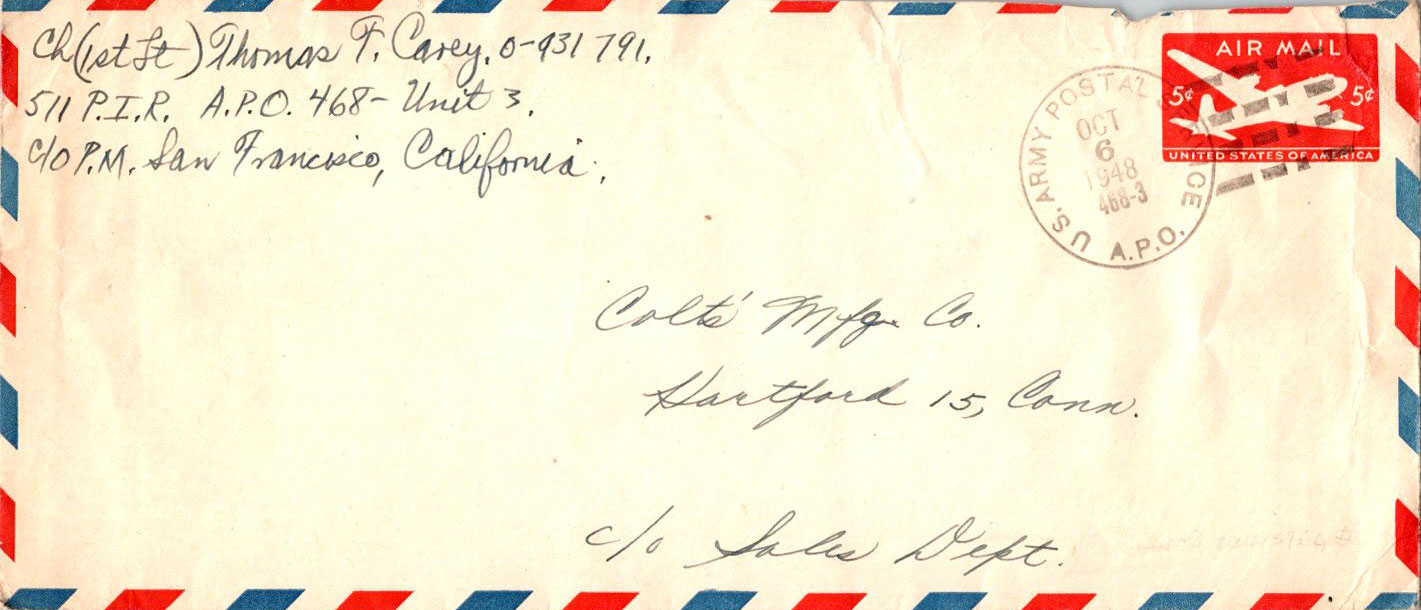 Ch (1st Lt) Thomas F. Carey. O-931 791.
511 P.I.R. A.P.O. 468- Unit 3.
c/o P.M. San Francisco, California.
AIR MAIL
5¢ 5¢
UNITED STATES OF AMERICA
U.S. ARMY POSTAL
A.P.O.
OCT
6
1948
468-3
Colt's Mfg. Co.
Hartford 15, Conn.
c/o Sales Dept.